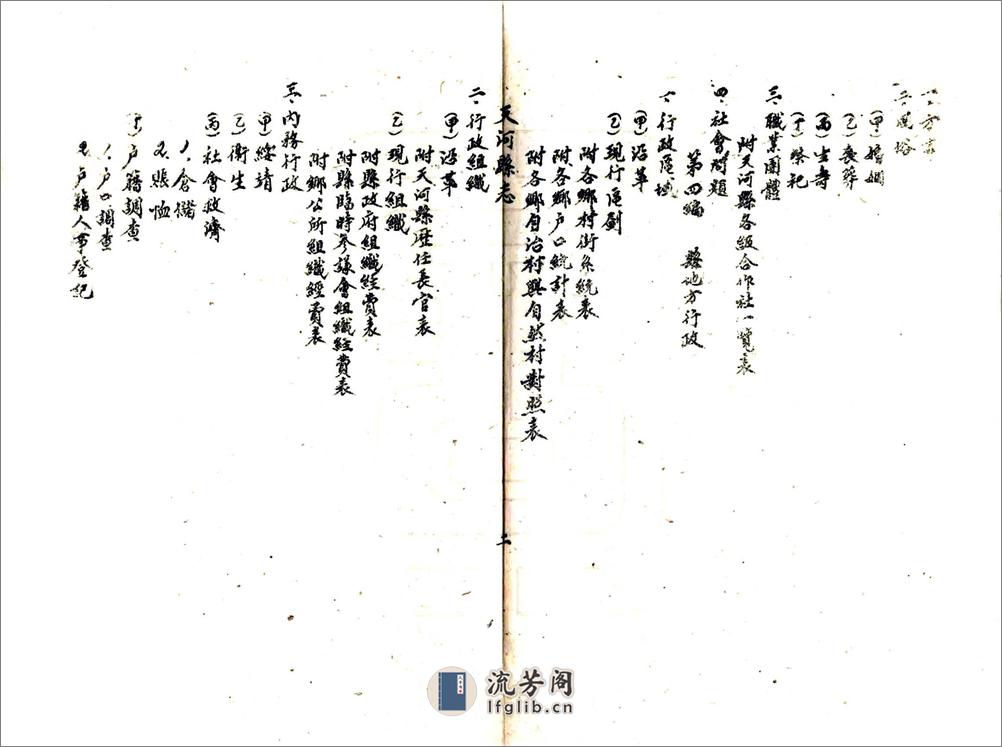 一、方言
二、風俗
(甲)婚姻
(乙)喪葬
(丙)生壽
(丁)祭祀
三、職業團體
附天河縣各級合作社一覽表
四、社會問題
第四編 縣地方行政
一、行政區域
(甲)沿革
(乙)現行區劃
附各鄉村街系統表
附各鄉戶口統計表
附各鄉自治村與自然村對照表
天河縣志 二
二、行政組織
(甲)沿革
附天河縣歷任長官表
(乙)現行組織
附縣政府組織經費表
附縣臨時參議會組織經費表
附鄉公所組織經費表
三、內務行政
(甲)綏靖
(乙)衛生
(丙)社會救濟
1.倉儲
2.賑恤
(丁)戶籍調查
1.戶口調查
2.戶籍人事登記
流芳阁
lfglib.cn